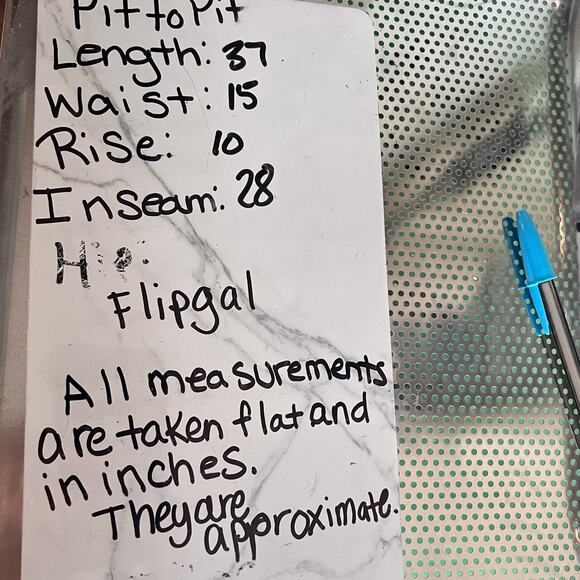 Pit to Pit
Length: 37
Waist: 15
Rise: 10
Inseam: 28
Hip:
Flipgal
All measurements
are taken flat and
in inches.
They are
approximate.